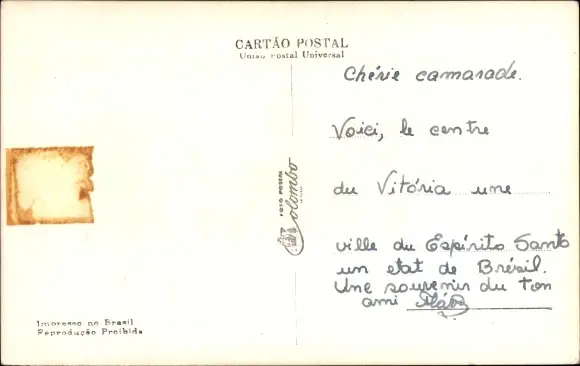 CARTÃO POSTAL
União Postal Universal
Chérie camarade.
Voici, le centre
du Vitória une
ville du Espírito Santo
un etat de Brésil.
Une souvenir du ton
ami
FOTO POSTAL
Colombo
Impresso no Brasil
Reprodução Proibida